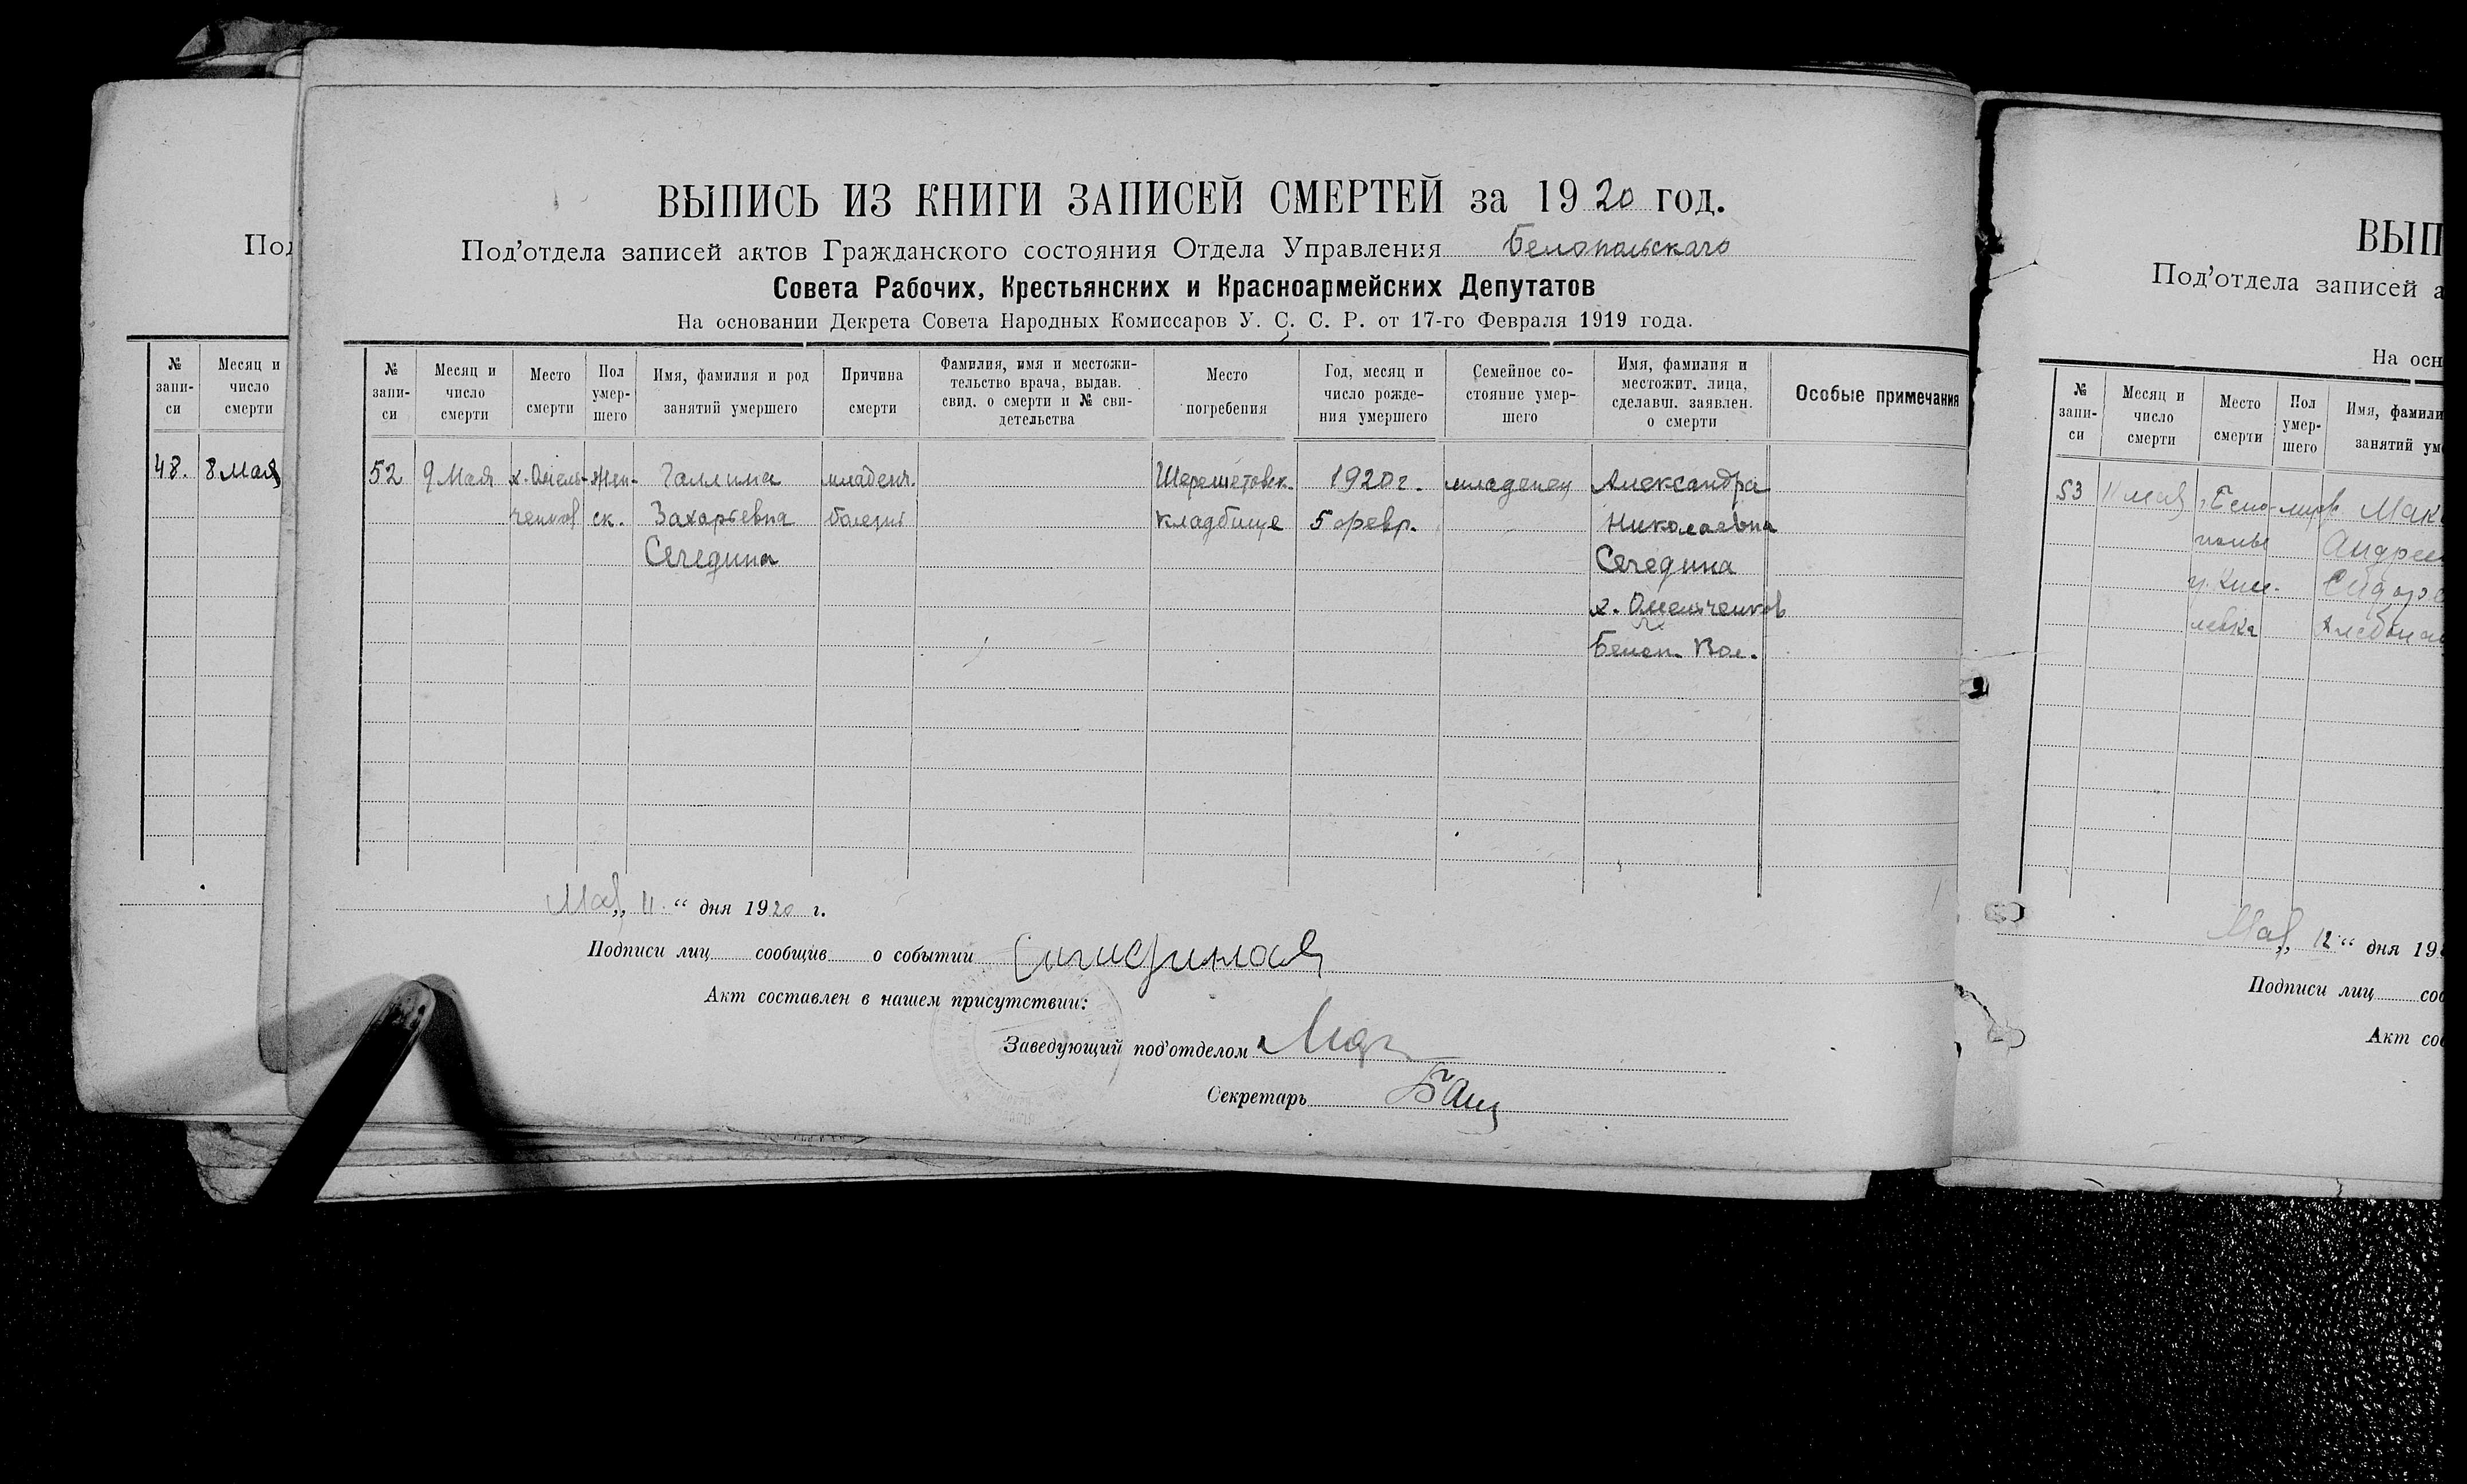 ВЫПИСЬ ИЗ КНИГИ ЗАПИСЕЙ СМЕРТЕЙ за 1920 год.
Под’отдела записей актов Гражданского состояния Отдела Управления Белопольскаго
Совета Рабочих, Крестьянских и Красноармейских Депутатов
На основании Декрета Совета Народных Комиссаров У. С. С. Р. от 17-го Февраля 1919 года.
№ запи-си
Месяц и число смерти
Место смерти
Пол умер-шего
Имя, фамилия и род занятий умершего
Причина смерти
Фамилия, имя и местожи-тельство врача, выдав. свид. о смерти и № сви-детельства
Место погребения
Год, месяц и число рожде-ния умершего
Семейное со-стояние умер-шего
Имя, фамилия и местожит. лица, сделавш. заявлен. о смерти
Особые примечания
52 9 Мая х. Омель- Жен- Галлина младенч. Шерешетовск. 1920 г. младенец Александра
ченков ск. Захарьевна болезнь кладбище 5 февр. Николаевна
Середина Середина
х. Омельченков
Белоп. Вол.
Мая „ 11. “ дня 1920 г.
Подписи лиц сообщив о событии
Акт составлен в нашем присутствии:
Заведующий под’отделом
Секретарь
Под
№ запи-си
Месяц и число смерти
48. 8 Мая
ВЫП
Под’отдела записей а
На осн
№ запи-си
Месяц и число смерти
Место смерти
Пол умер-шего
Имя, фамили
занятий ум
53 11 мая г. Бело-
полье Андрее
Сидоре
левка
Мая „ 12 “ дня 19
Подписи лиц соо
Акт сос